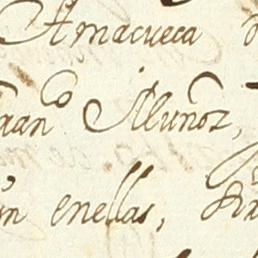 Amacueca
Fran^co Muñoz,
en enellas,